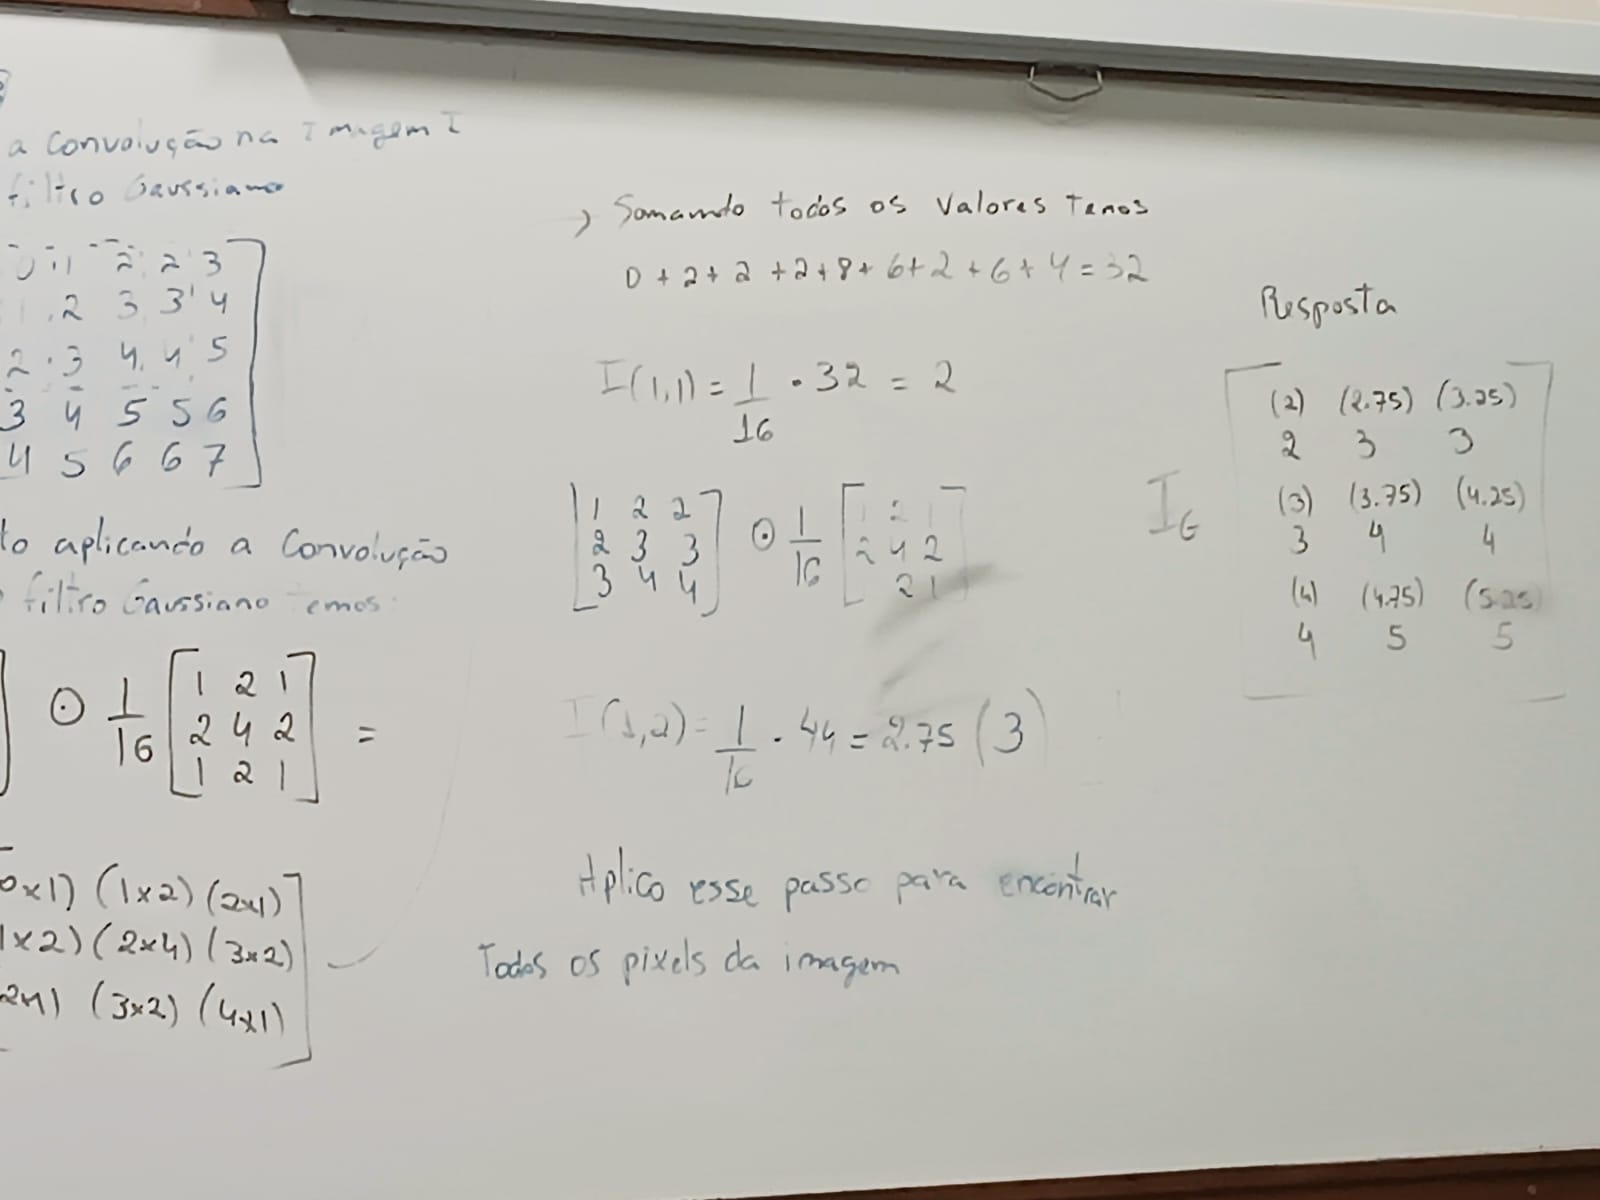 a Convolução na Imagem I
filtro Gaussiano
0 1 2 2 3
1 2 3 3 4
2 3 4 4 5
3 4 5 5 6
4 5 6 6 7
to aplicando a Convolução
filtro Gaussiano temos:
⊙ 1/16 [1 2 1
2 4 2
1 2 1] =
0x1) (1x2) (2x1)
1x2) (2x4) (3x2)
2x1) (3x2) (4x1)
Somando todos os valores temos
0 + 2 + 2 + 2 + 8 + 6 + 2 + 6 + 4 = 32
I(1,1) = 1/16 · 32 = 2
[1 2 2
2 3 3
3 4 4] ⊙ 1/16 [1 2 1
2 4 2
2 1]
I(1,2) = 1/16 · 44 = 2.75 (3)
Aplico esse passo para encontrar
Todos os pixels da imagem
Resposta
I_G
(2) (2.75) (3.25)
2 3 3
(3) (3.75) (4.25)
3 4 4
(4) (4.75) (5.25)
4 5 5